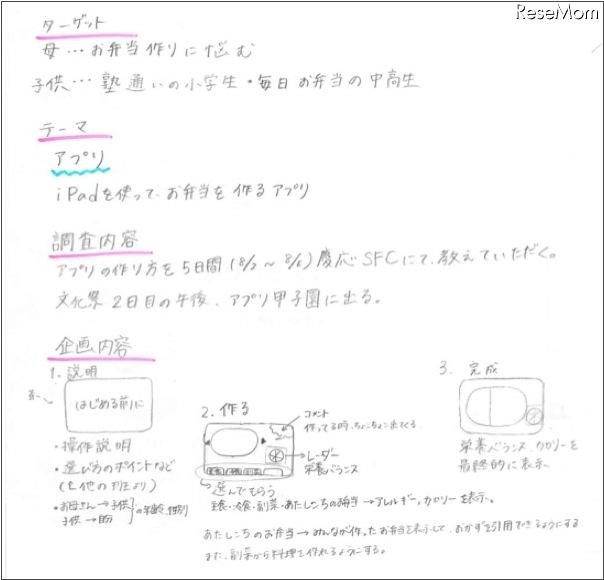 ReseMom
ターゲット
母…お弁当作りに悩む
子供…塾通いの小学生・毎日お弁当の中高生
テーマ
アプリ
iPadを使って、お弁当を作るアプリ
調査内容
アプリの作り方を5日間(8/2～8/6)慶応SFCにて、教えていただく。
文化祭2日目の午後、アプリ甲子園に出る。
企画内容
1. 説明
はじめる前に
・操作説明
・選び方のポイントなど
(も他の班より)
・お母さん→子供
子供→自分
の年齢、性別
2. 作る
コメント
作ってる時、ちょこちょこ出てくる
レーダー
栄養バランス
選んでもらう
主食・冷食・副菜・あたしンちのお弁当→アレルギー、カロリーを表示。
あたしンちのお弁当→みんなが作ったお弁当を表示して、おかずを引用できるようにする
また、副菜から料理を作れるようにする。
3. 完成
栄養バランス、カロリーを
最終的に表示